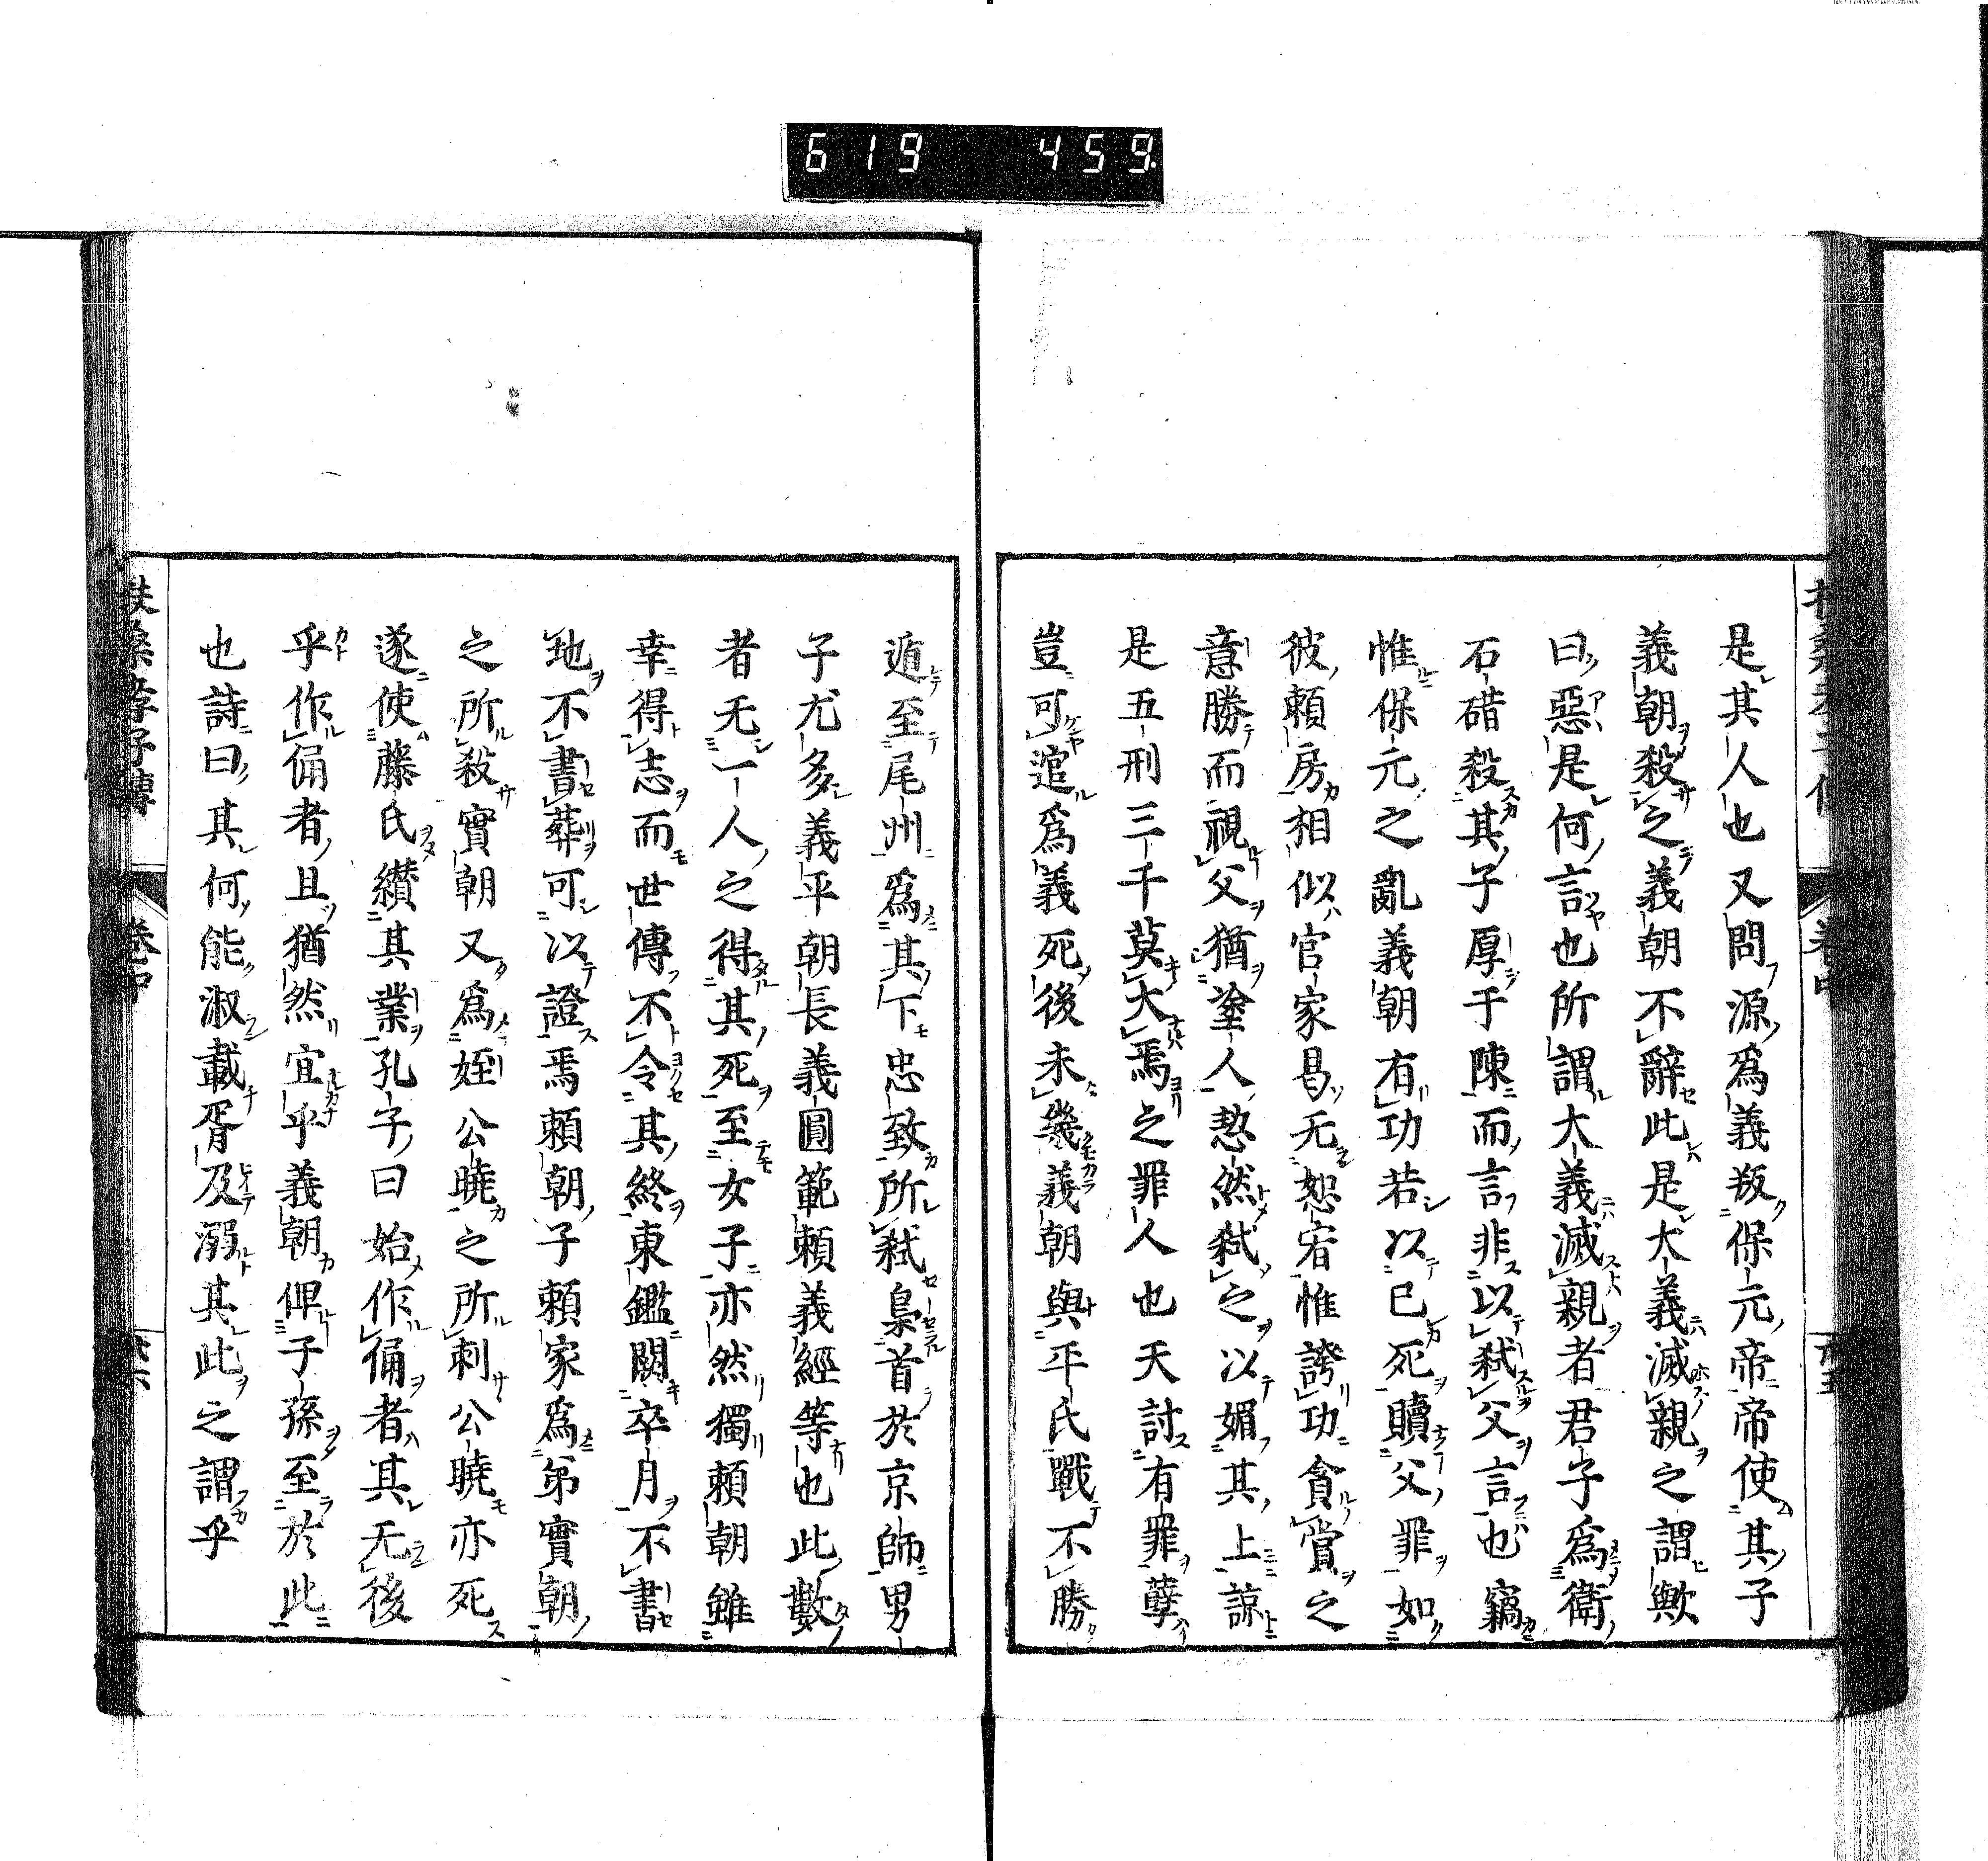 619 459.
是其人也又問源爲義叛保元帝帝使其子
義朝殺之義朝不辭此是大義滅親之謂歟
曰惡是何言也所謂大義滅親者君子爲衛
石碏殺其子厚于陳而言非以弒父言也竊
惟保元之亂義朝有功若以已死贖父罪如
彼賴房相似官家曷无恕宥惟誇功貪賞之
意勝而視父猶塗人愸然弒之以媚其上諒
是五刑三千莫大焉之罪人也天討有罪孽
豈可逭爲義死後未幾義朝與平氏戰不勝
遁至尾州爲其下忠致所弒梟首於京師男
子尤多義平朝長義圓範賴義經等也此數
者无一人之得其死至女子亦然獨賴朝雖
幸得志而世傳不令其終東鑑闕卒月不書
地不書葬可以證焉賴朝子賴家爲弟實朝
之所殺實朝又爲姪公曉之所刺公曉亦死
遂使藤氏纘其業孔子曰始作俑者其无後
乎作俑者且猶然宜乎義朝俾子孫至於此
也詩曰其何能淑載胥及溺其此之謂乎
扶桑孝子傳
卷中